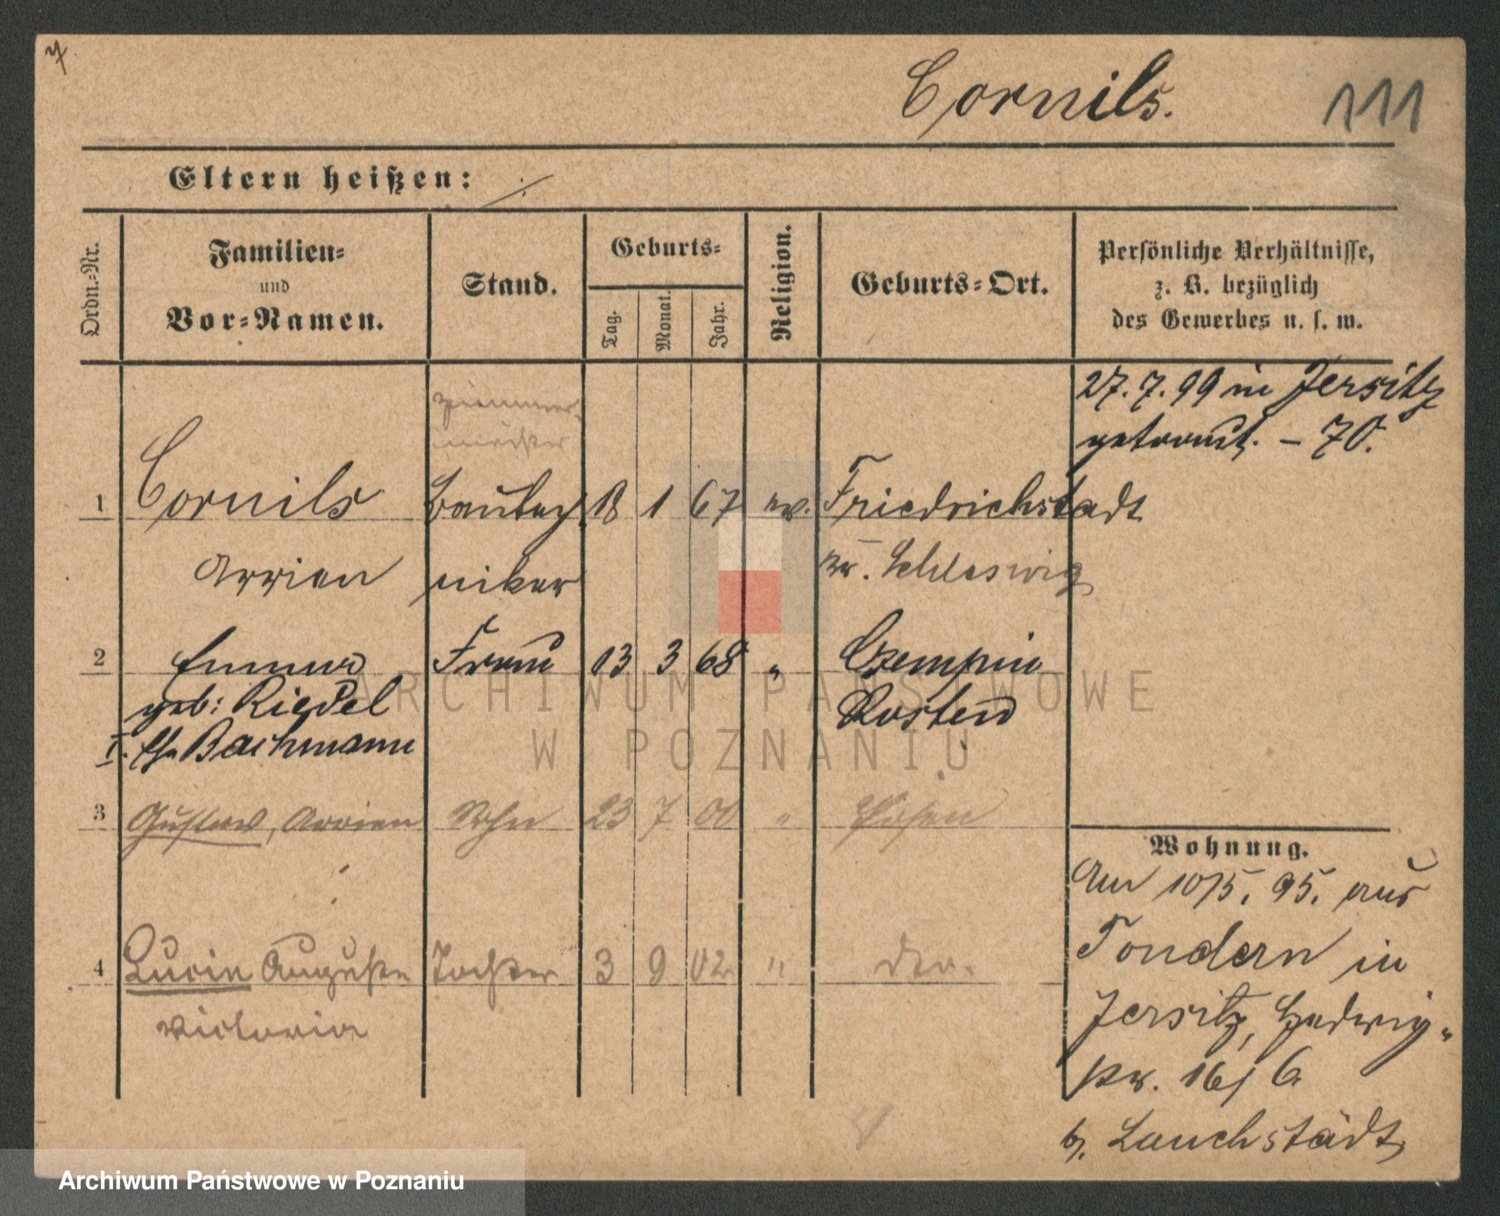 Cornils.
111
Eltern heißen: ./.
Ordn.-Nr.
Familien-
und
Vor-Namen.
Stand.
Geburts-
Tag.
Monat.
Jahr.
Religion.
Geburts-Ort.
Persönliche Verhältnisse,
z. B. bezüglich
des Gewerbes u. s. w.
27.7.99 in Jersitz
getraut. – 70.
Zimmer-
meister
1 Cornils Bautech 18 1 67 ev. Friedrichstadt
Arrien niker Kr. Schleswig
2 Emma Frau 13 3 68 " Czempin
geb: Riedel Kosten
I. Bachmann
3 Gustav, Arrien Sohn 23 7 00 " Posen
4 Lucie Auguste Tochter 3 9 02 " do.
Victoria
Wohnung.
Am 10/5. 95. aus
Tondern in
Jersitz, Hedwig-
str. 16/6
b. Lauchstädt
ARCHIWUM PAŃSTWOWE
W POZNANIU
Archiwum Państwowe w Poznaniu